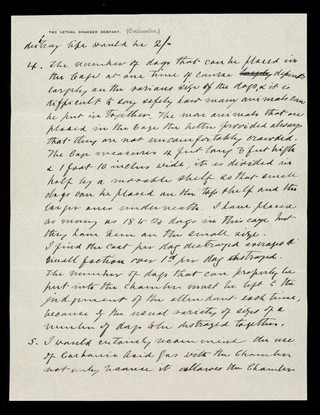 THE LETHAL CHAMBER COMPANY. (Continuation.)
destroy life would be 2/-
4. The number of dogs that can be placed in
the Cage at one time of course depends
largely on the various size of the dogs, & it is
difficult to say safely how many animals can
be put in together. The more animals that are
placed in the Cage the better provided always
that they are not uncomfortably crowded.
The Cage measures 4 feet long 3 feet high
& 1 foot 10 inches wide, it is divided in
half by a movable shelf so that small
dogs can be placed on the top shelf and the
larger ones underneath. I have placed
as many as 18 to 20 dogs in this cage but
they have been on the small size.
I find the cost per dog destroyed averages a
small fraction over 1d per dog destroyed.
The number of dogs that can properly be
put into the Chamber must be left to the
judgment of the attendant each time,
because of the usual variety of sizes of a
number of dogs to be destroyed together.
5. I would certainly recommend the use
of Carbonic Acid Gas with the Chamber
not only because it allows the Chamber